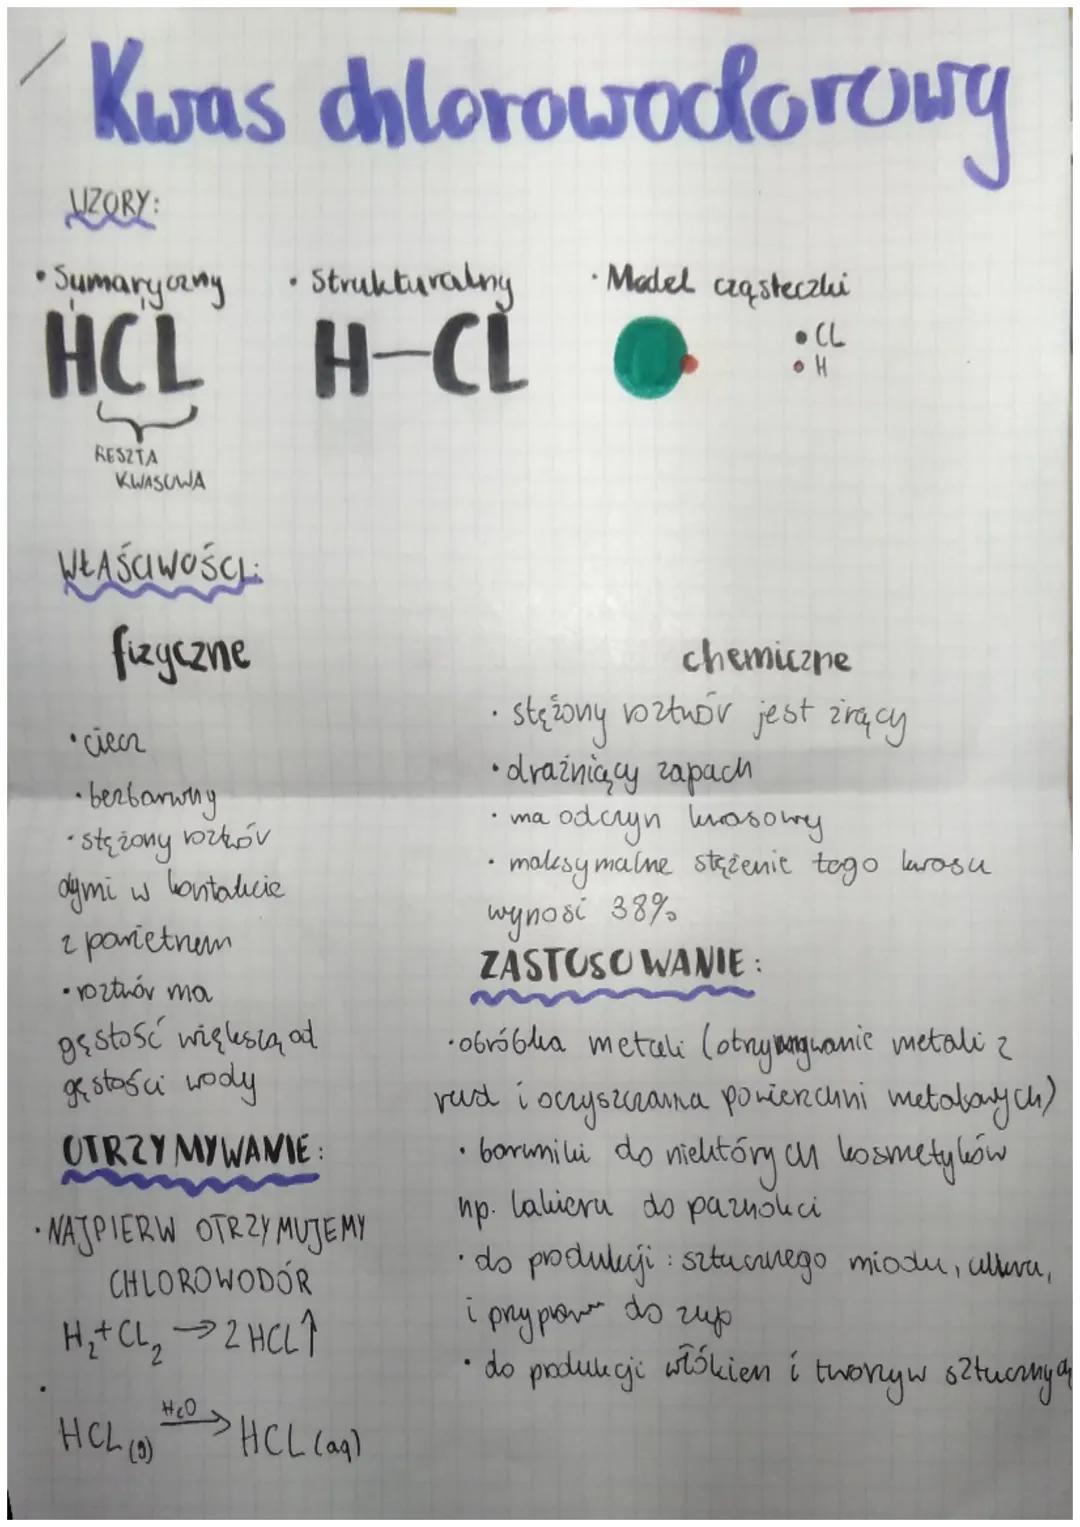 Kwas chlorowodorowy
WZORY:
• Sumaryczny
HCL
RESZTA
KWASOWA
• Strukturalny
H-CL
• Model cząsteczki
• CL
• H
WŁAŚCIWOŚCI:
fizyczne
• ciecz
• bezbarwny
• stężony roztwór
dymi w kontakcie
z powietrzem
• roztwór ma
gęstość większą od
gęstości wody
OTRZYMYWANIE:
• NAJPIERW OTRZYMUJEMY
CHLOROWODÓR
H₂+CL₂ → 2HCL↑
•
H₂O
HCL(g) → HCL(aq)
chemiczne
• stężony roztwór jest żrący
• drażniący zapach
• ma odczyn kwasowy
• maksymalne stężenie tego kwasu
wynosi 38%
ZASTOSOWANIE:
• obróbka metali (otrzymywanie metali z
rud i oczyszczania powierzchni metalowych)
• barwniki do niektórych kosmetyków
np. lakieru do paznokci
• do produkcji: sztucznego miodu, cukru,
i przypraw do zup
• do produkcji włókien i tworzyw sztucznych